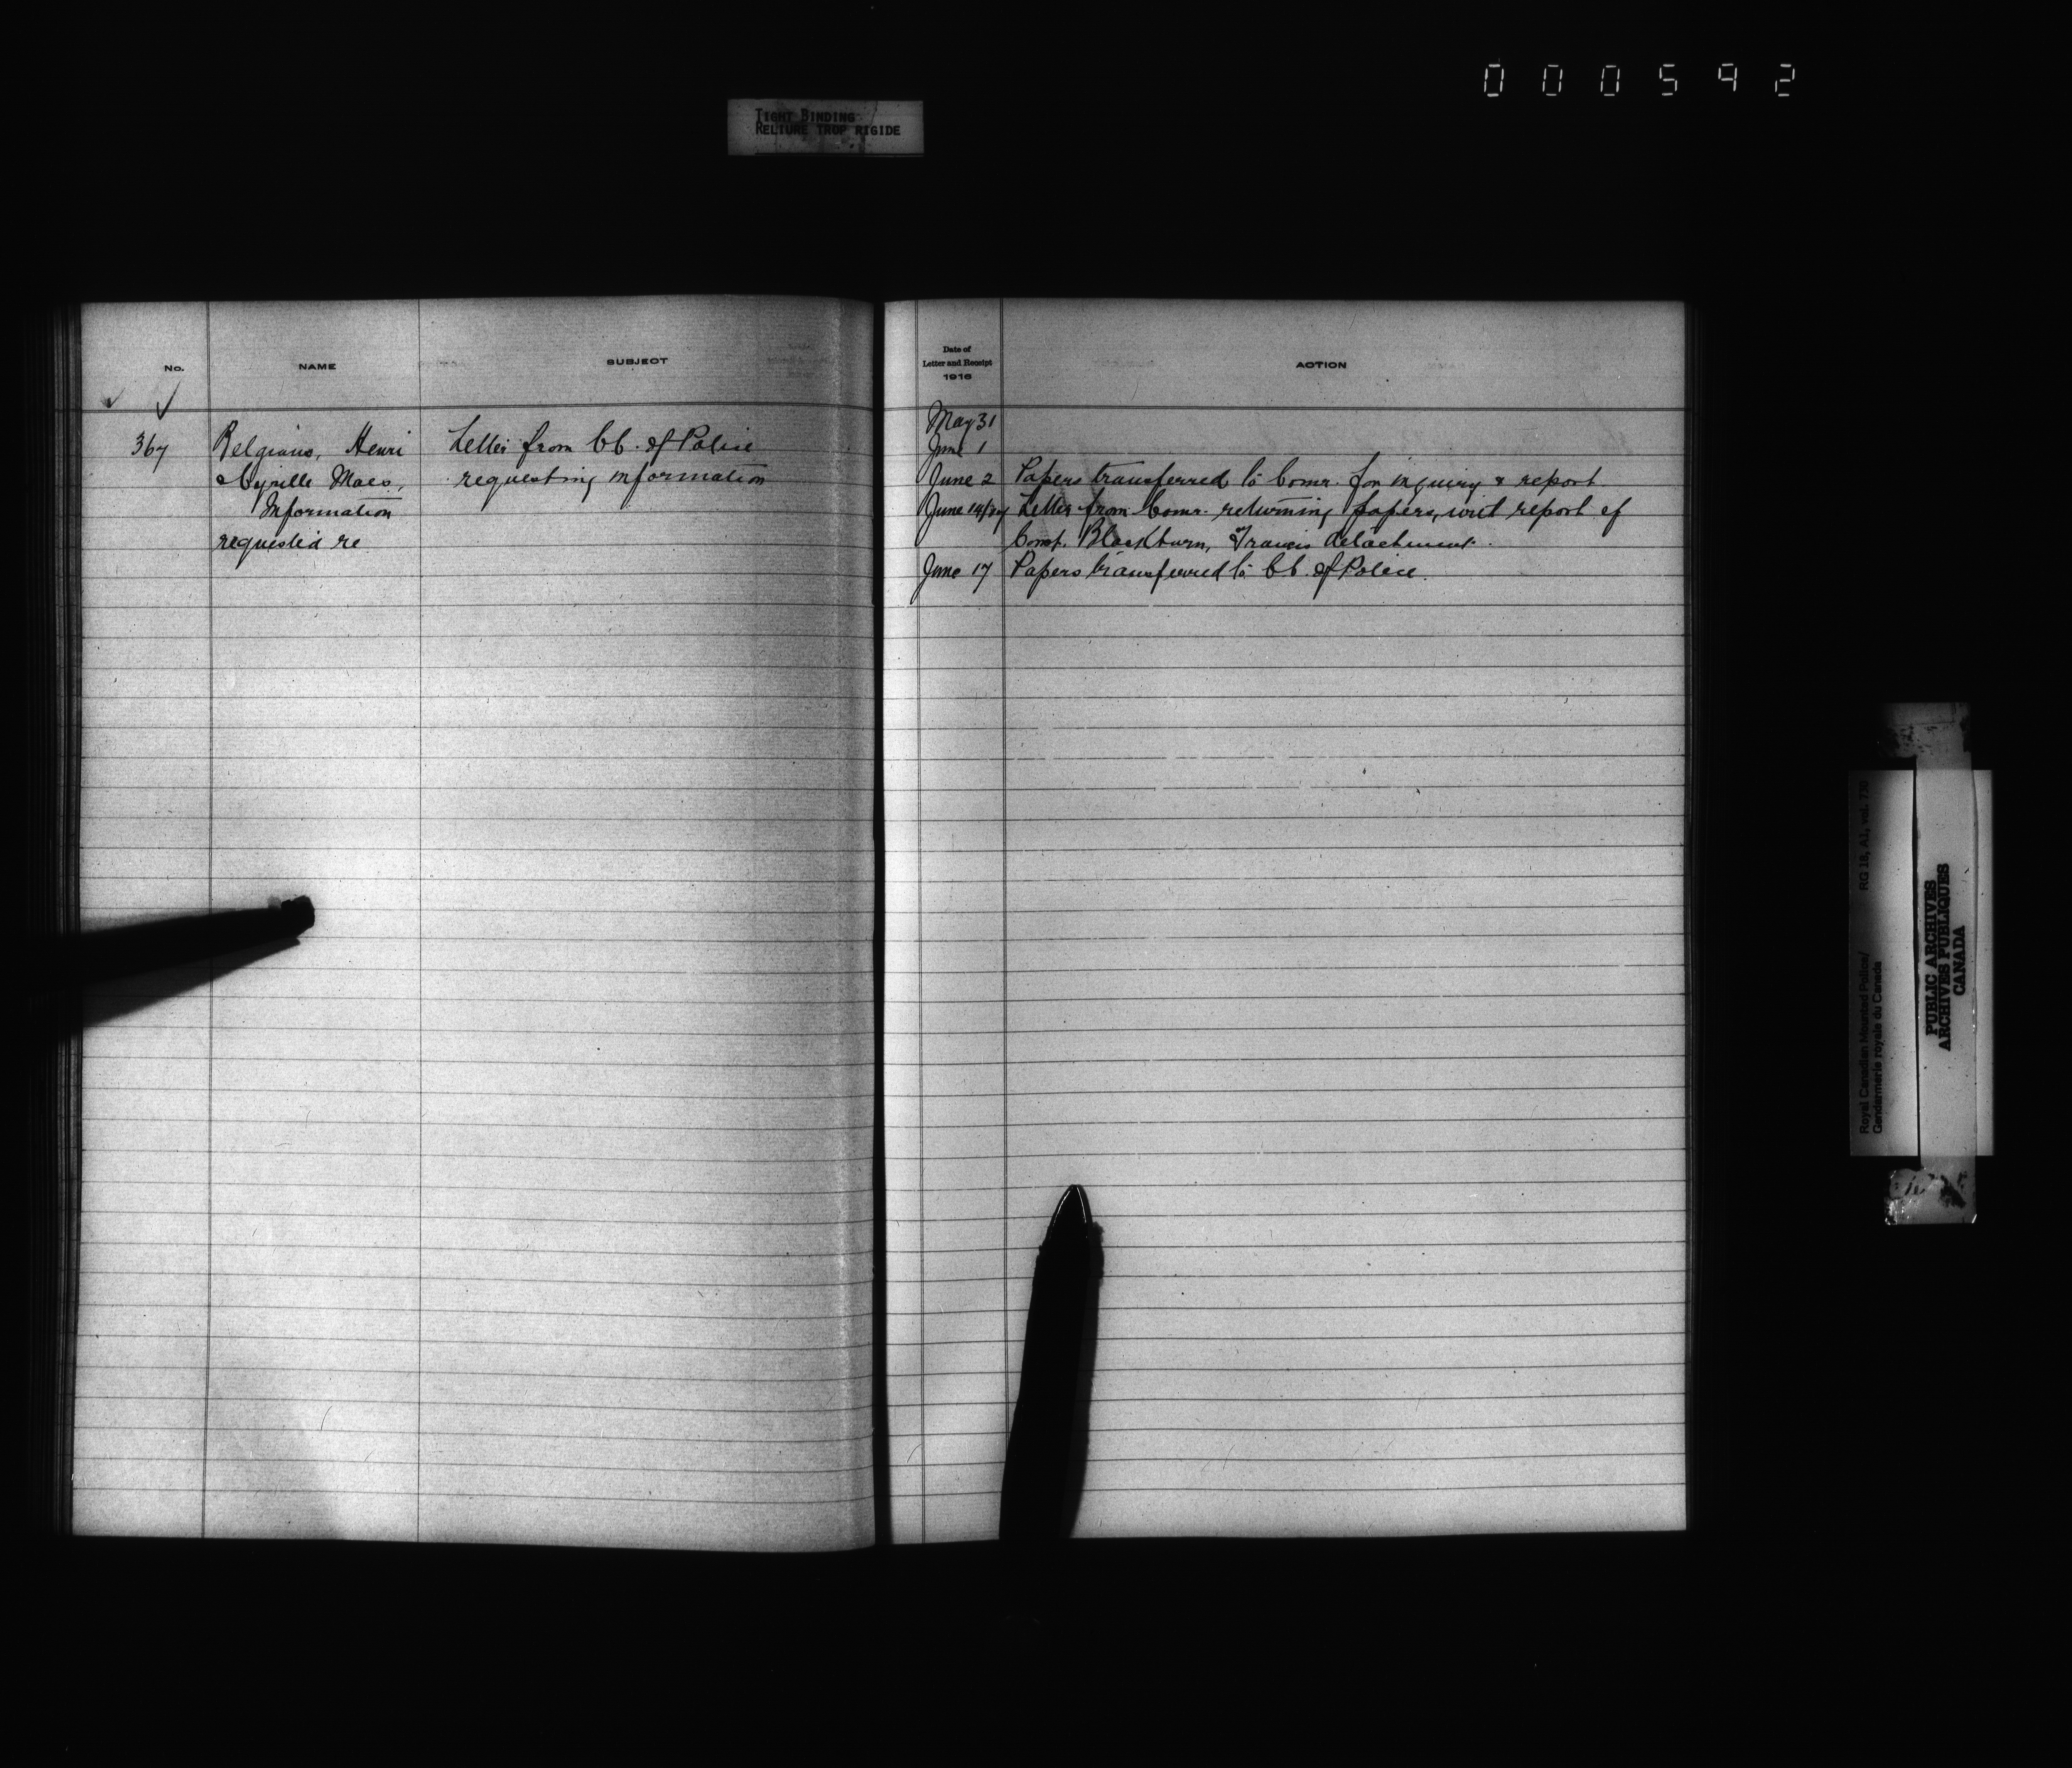 000592
TIGHT BINDING
RELIURE TROP RIGIDE
No.
NAME
SUBJECT
367
Belgians, Henri
Cyrille Maes,
Information
requested re
Letter from Ch. of Police
requesting information
Date of
Letter and Receipt
1916
ACTION
May 31
June 1
June 2 Papers transferred to Comr. for inquiry & report
June 14/17 Letter from Comr. returning papers, wit report of
Const. Blackburn, Travers detachment.
June 17 Papers transferred to Ch. of Police.
Royal Canadian Mounted Police/
Gendarmerie royale du Canada
RG 18, A1, vol. 730
PUBLIC ARCHIVES
ARCHIVES PUBLIQUES
CANADA